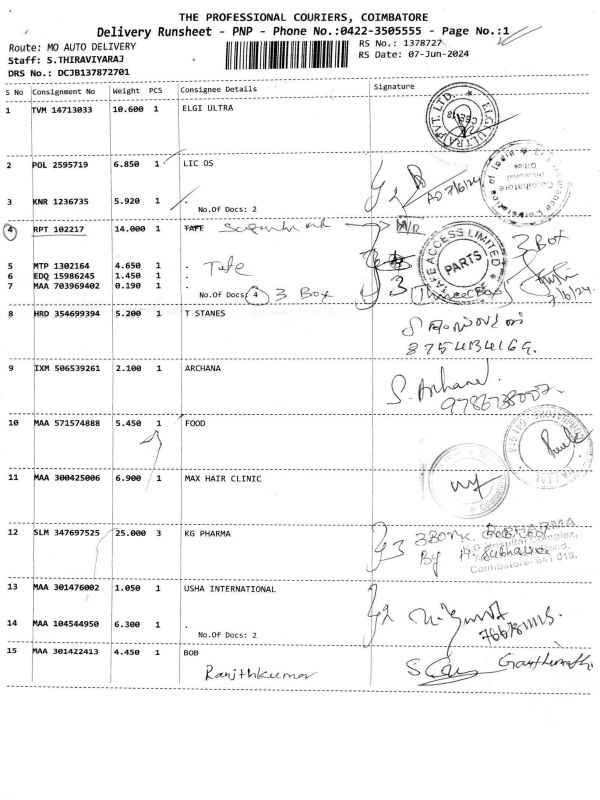 THE PROFESSIONAL COURIERS, COIMBATORE
Delivery Runsheet - PNP - Phone No.:0422-3505555 - Page No.:1
Route: MO AUTO DELIVERY
RS No.: 1378727
Staff: S.THIRAVIYARAJ
RS Date: 07-Jun-2024
DRS No.: DCJB137872701
S No Consignment No Weight PCS Consignee Details Signature
1 TVM 14713033 10.600 1 ELGI ULTRA
2 POL 2595719 6.850 1 LIC OS
AO 7/6/24
3 KNR 1236735 5.920 1 .
No.Of Docs: 2
4 RPT 102217 14.000 1 TAFE
TAFE ACCESS LIMITED
PARTS
3 Box
5 MTP 1302164 4.650 1 . Tafe
6 EDQ 15986245 1.450 1 .
7 MAA 703969402 0.190 1 .
No.Of Docs: 4 3 Box
3 Three Box
7/6/24.
8 HRD 354699394 5.200 1 T STANES
9 IXM 506539261 2.100 1 ARCHANA
S. Archana.
10 MAA 571574888 5.450 1 FOOD
11 MAA 300425006 6.900 1 MAX HAIR CLINIC
12 SLM 347697525 25.000 3 KG PHARMA
Coimbatore- 641 018.
13 MAA 301476002 1.050 1 USHA INTERNATIONAL
14 MAA 104544950 6.300 1 .
No.Of Docs: 2
15 MAA 301422413 4.450 1 BOB
Ranjithkumar